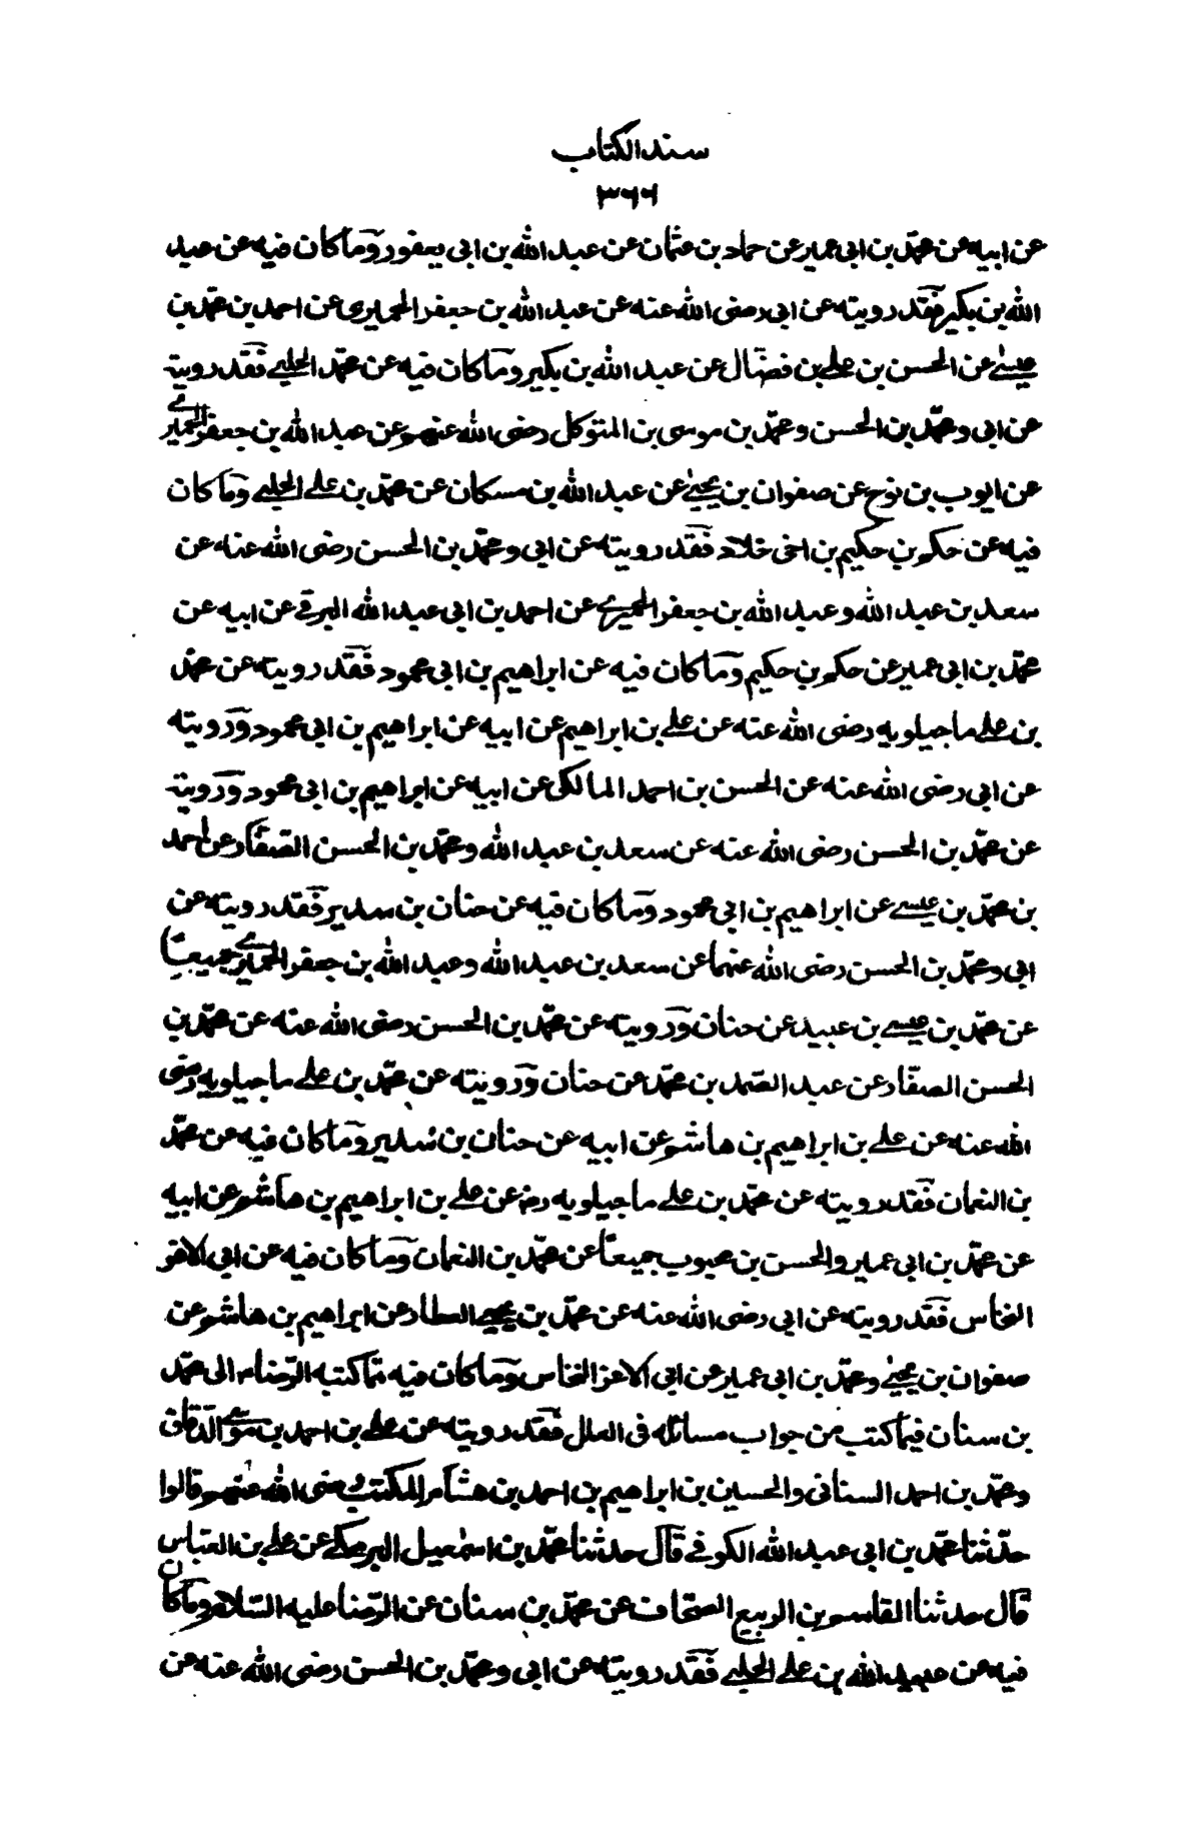 سند الكتاب
٣٦٦
عن ابيه عن محمّد بن ابى عمير عن حماد بن عثمان عن عبد الله بن ابى يعفور وما كان فيه عن عبد
الله بن بكير فقد رويته عن ابى رضى الله عنه عن عبد الله بن جعفر الحميرى عن احمد بن محمّد بن
عيسى عن الحسن بن على بن فضّال عن عبد الله بن بكير وما كان فيه عن محمّد الحلبي فقد رويته
عن ابى ومحمّد بن الحسن ومحمّد بن موسى بن المتوكل رضى الله عنهم عن عبد الله بن جعفر الحميري
عن ايوب بن نوح عن صفوان بن يحيى عن عبد الله بن مسكان عن محمّد بن على الحلبي وما كان
فيه عن حكم بن حكيم بن اخى خلاد فقد رويته عن ابى ومحمّد بن الحسن رضى الله عنه عن
سعد بن عبد الله وعبد الله بن جعفر الحميري عن احمد بن ابى عبد الله البرقى عن ابيه عن
محمّد بن ابى عمير عن حكم بن حكيم وما كان فيه عن ابراهيم بن ابى محمود فقد رويته عن محمّد
بن على ماجيلويه رضى الله عنه عن على بن ابراهيم عن ابيه عن ابراهيم بن ابى محمود ورويته
عن ابى رضى الله عنه عن الحسن بن احمد المالكى عن ابيه عن ابراهيم بن ابى محمود ورويته
عن محمّد بن الحسن رضى الله عنه عن سعد بن عبد الله ومحمّد بن الحسن الصفّار عن احمد
بن محمّد بن عيسى عن ابراهيم بن ابى محمود وما كان فيه عن حنان بن سدير فقد رويته عن
ابى ومحمّد بن الحسن رضى الله عنهما عن سعد بن عبد الله وعبد الله بن جعفر الحميري جميعًا
عن محمّد بن عيسى بن عبيد عن حنان ورويته عن محمّد بن الحسن رضى الله عنه عن محمّد بن
الحسن الصفّار عن عبد الصّمد بن محمّد عن حنان ورويته عن محمّد بن على ماجيلويه رضى
الله عنه عن على بن ابراهيم بن هاشم عن ابيه عن حنان بن سدير وما كان فيه عن محمّد
بن النعمان فقد رويته عن محمّد بن على ماجيلويه رضـ عن على بن ابراهيم بن هاشم عن ابيه
عن محمّد بن ابى عمير والحسن بن محبوب جميعًا عن محمّد بن النعمان وما كان فيه عن ابى الاغر
النخاس فقد رويته عن ابى رضى الله عنه عن محمّد بن يحيى العطار عن ابراهيم بن هاشم عن
صفوان بن يحيى ومحمّد بن ابى عمير عن ابى الاغر النخاس وما كان فيه مما كتبه الرّضاء الى محمّد
بن سنان فيما كتب من جواب مسائله فى العلل فقد رويته عن على بن احمد بن موسى الدّقاق
ومحمّد بن احمد السنانى والحسين بن ابراهيم بن احمد بن هشام المكتب رضى الله عنهم قالوا
حدّثنا محمّد بن ابى عبد الله الكوفى قال حدثنا محمّد بن اسمعيل البرمكى عن على بن العبّاس
قال حدثنا القاسم بن الربيع الصحّاف عن محمّد بن سنان عن الرّضا عليه السّلام وما كان
فيه عن عبيد الله بن على الحلبي فقد رويته عن ابى ومحمّد بن الحسن رضى الله عنه عن